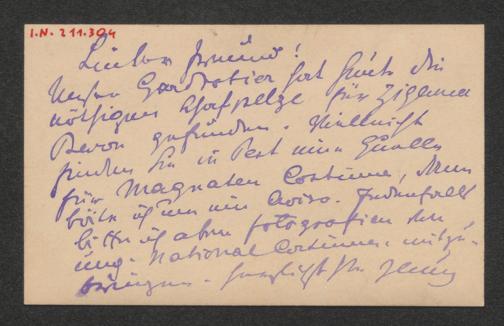 I.N. 211.304
Lieber Freund!
Unser Garderobier hat heute die
nöthigen Schafpelze für Zigeuner
Baron gefunden. Vielleicht
finden Sie in Pest eine Quelle
für Magnaten Costüme, dann
bitte ich um ein Aviso. Jedenfalls
bitte ich aber fotografien der
ung. National Costüme, mitzu-
bringen. Herzlichst Ihr